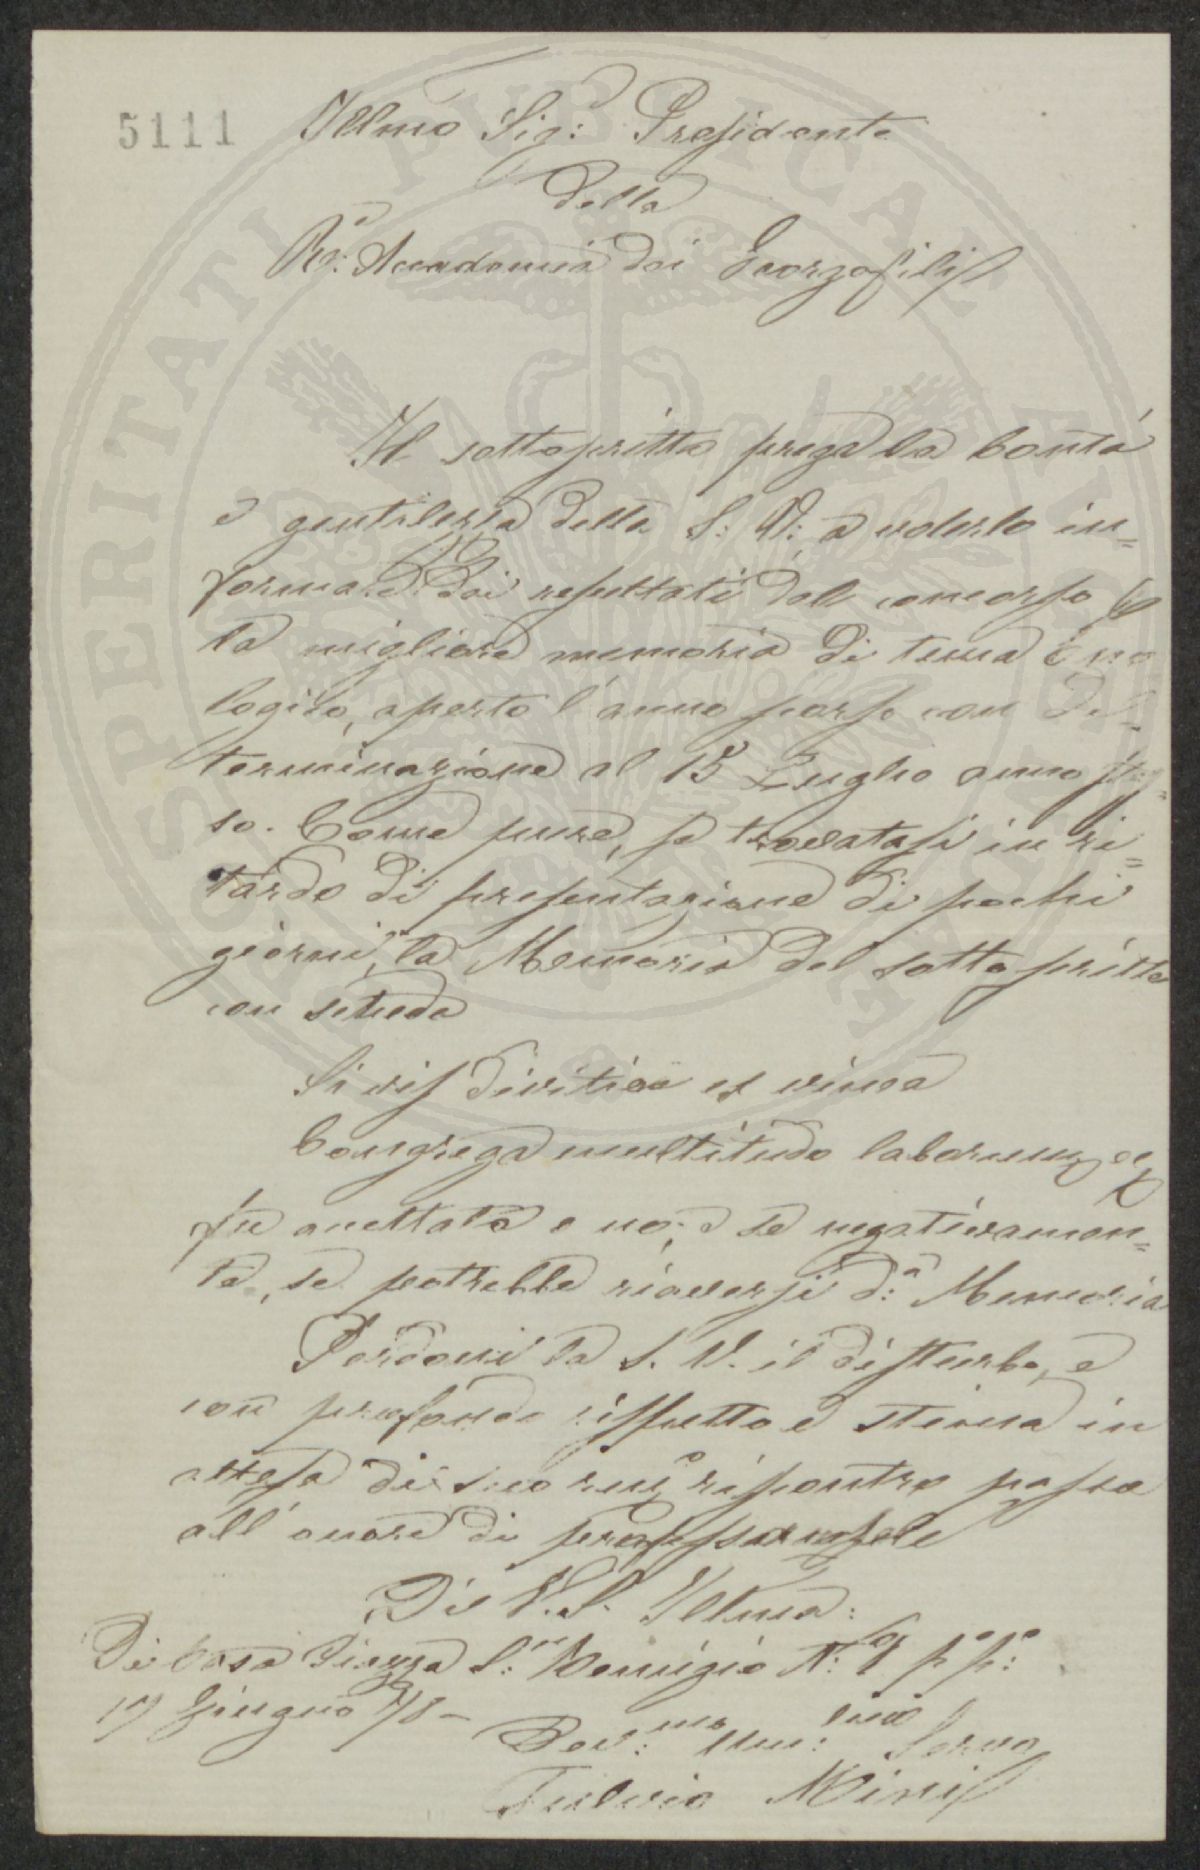 5111
Illmo Sig:r Presidente
della
Ra: Accademia dei Georgofili
Il sottoscritto prega la bontà
e gentilezza della S: V: a volerlo in=
formare dei resultati del concorso
la migliore memoria di tema Eno
logico, aperto l'anno scorso con de=
terminazione al 15 Luglio anno
so. Come pure, se trovatasi in ri=
tardo di presentazione di pochi
giorni, la Memoria del sottoscritto
con scheda
Si vis divitiae ex vinea
Congrega multitudo laborum,
fu accettata o no; e se negativamen=
te, se potrebbe riaversi d:a Memoria
Perdoni la S. V. il disturbo, e
con profondo rispetto e stima in
attesa di suo riscontro passa
all'onore di professarsele
Di V. S. Illma:
Di Casa Piazza S:n Remigio N:o 9 po po:
17 Giugno 78 -
Dev:mo Um:mo Servo
Fulvio Mini
SPERITATI PUBLICAE